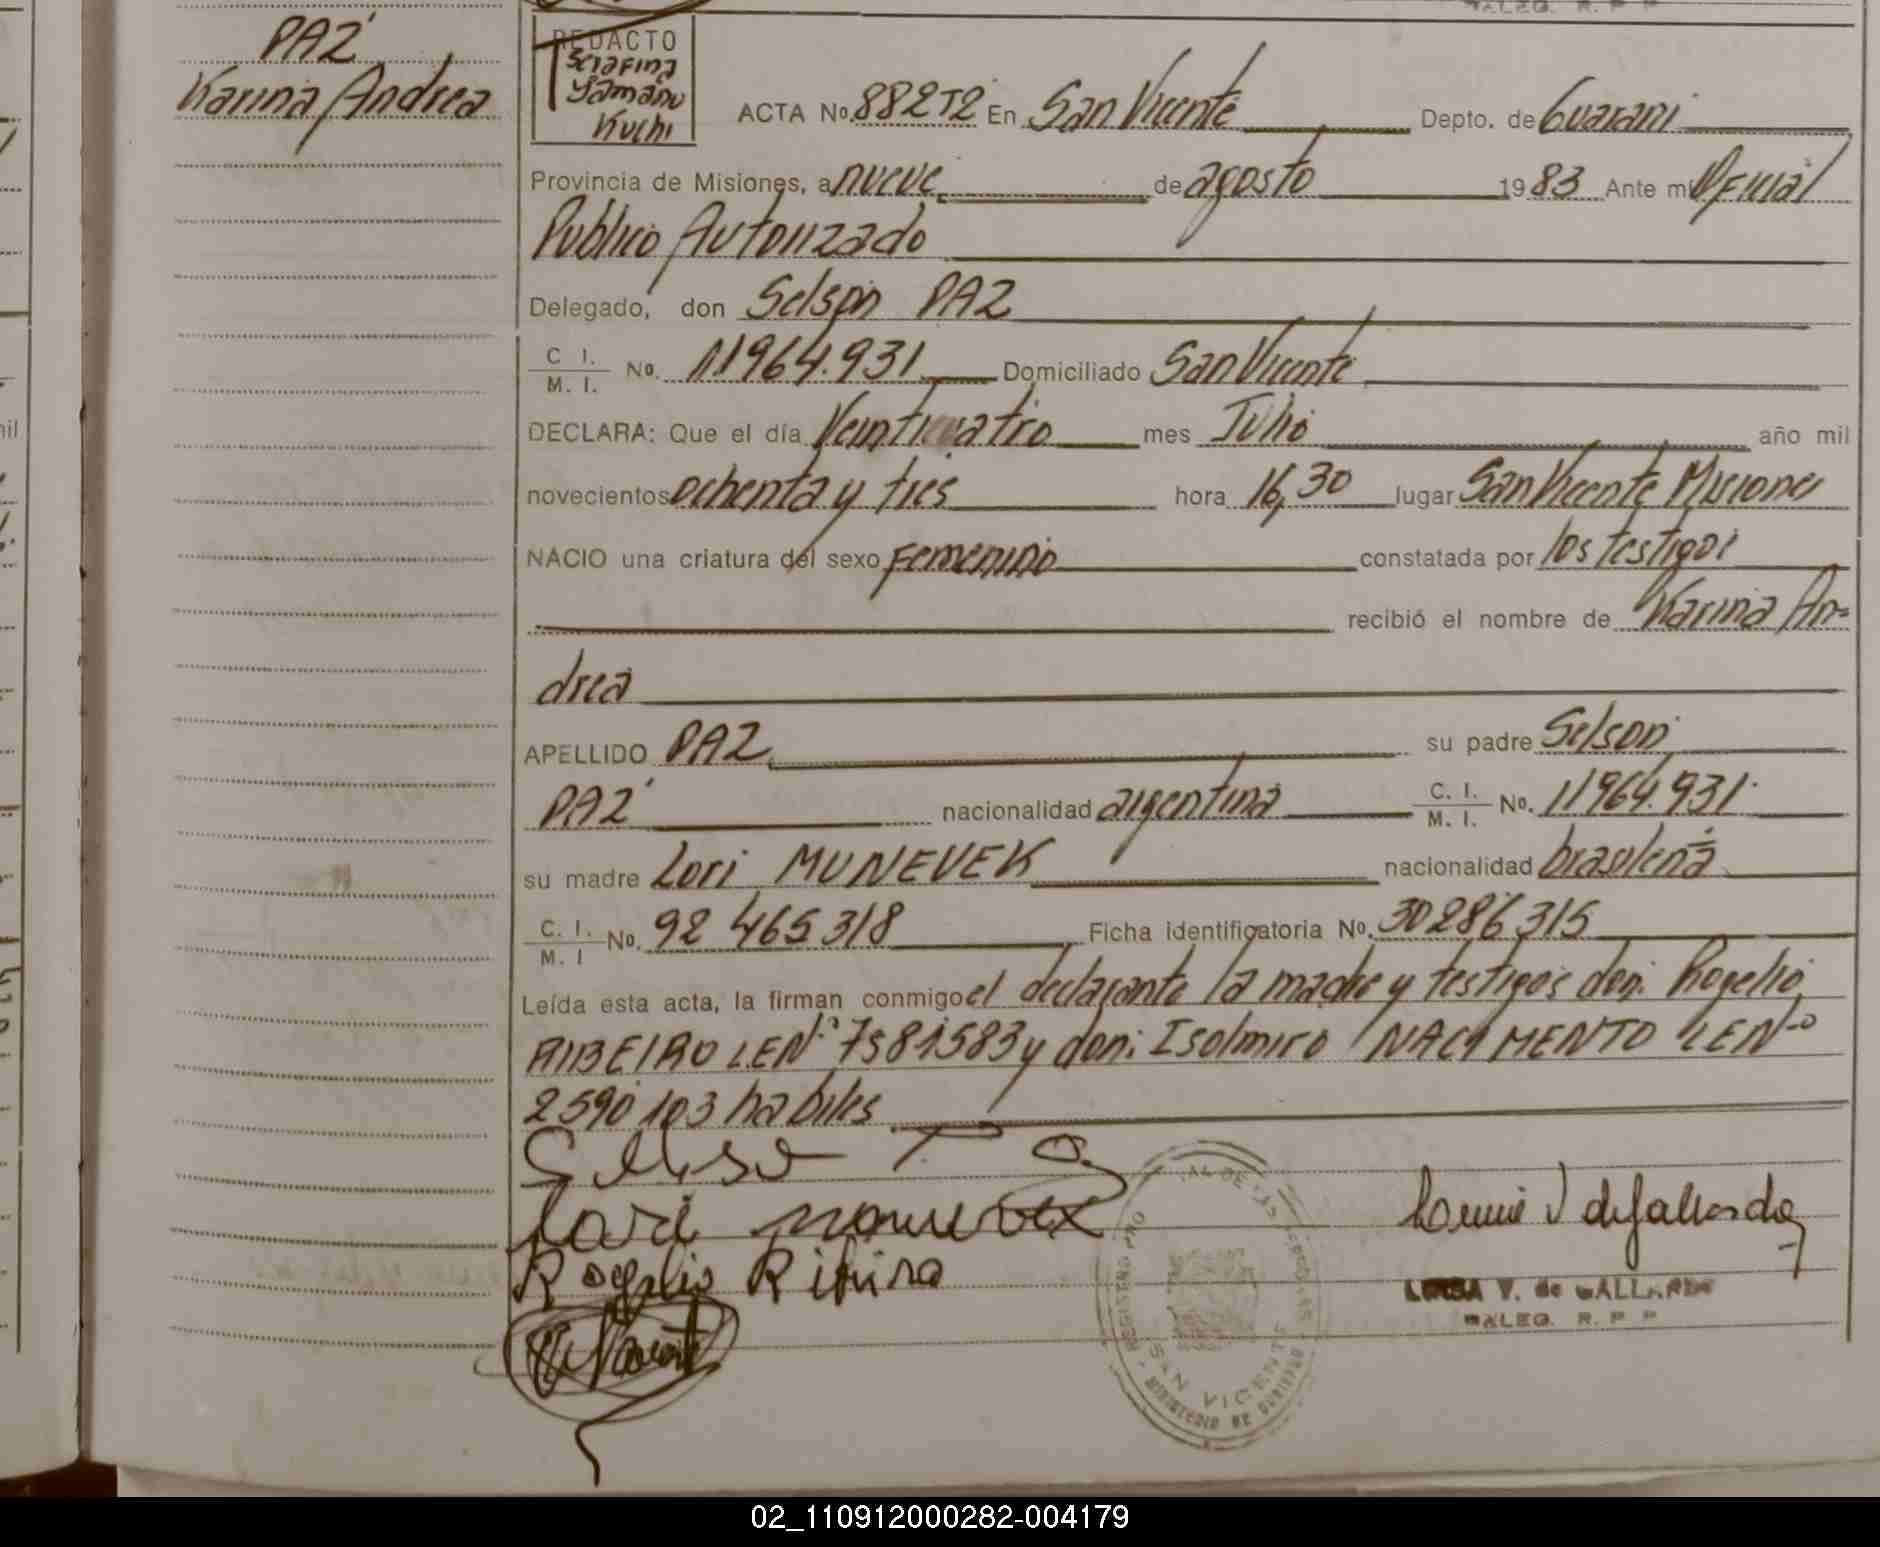 PAZ
Karina Andrea
REDACTO
Serafina
Yamanu
Kuchi
ACTA No. 882T2 En San Vicente Depto. de Guarani
Provincia de Misiones, a nueve de agosto 1983 Ante mi Oficial
Publico Autorizado
Delegado, don Selson PAZ
C. I. / M. I. No. 11964.931 Domiciliado San Vicente
DECLARA: Que el día Veinticuatro mes Julio año mil
novecientos ochenta y tres hora 16,30 lugar San Vicente Misiones
NACIO una criatura del sexo Femenino constatada por los testigos
recibió el nombre de Karina An=
drea
APELLIDO PAZ su padre Selson
PAZ nacionalidad argentina C. I. / M. I. No. 11964.931
su madre Lori MUNEVEK nacionalidad brasileña
C. I. / M. I No. 92 465 318 Ficha identificatoria No. 30286315
Leída esta acta, la firman conmigo el declarante la madre y testigos don: Rogelio
RIBEIRO L.E.Nº 7581583 y don: Isolmiro NACIMENTO LENº
2590103 habiles
Rogelio Ribeira
LUISA V. de GALLARDO
DALEG. R. P P
REGISTRO PRO AL DE LAS PERSONAS
SAN VICENTE
MINISTERIO DE GOBIERNO
02_110912000282-004179